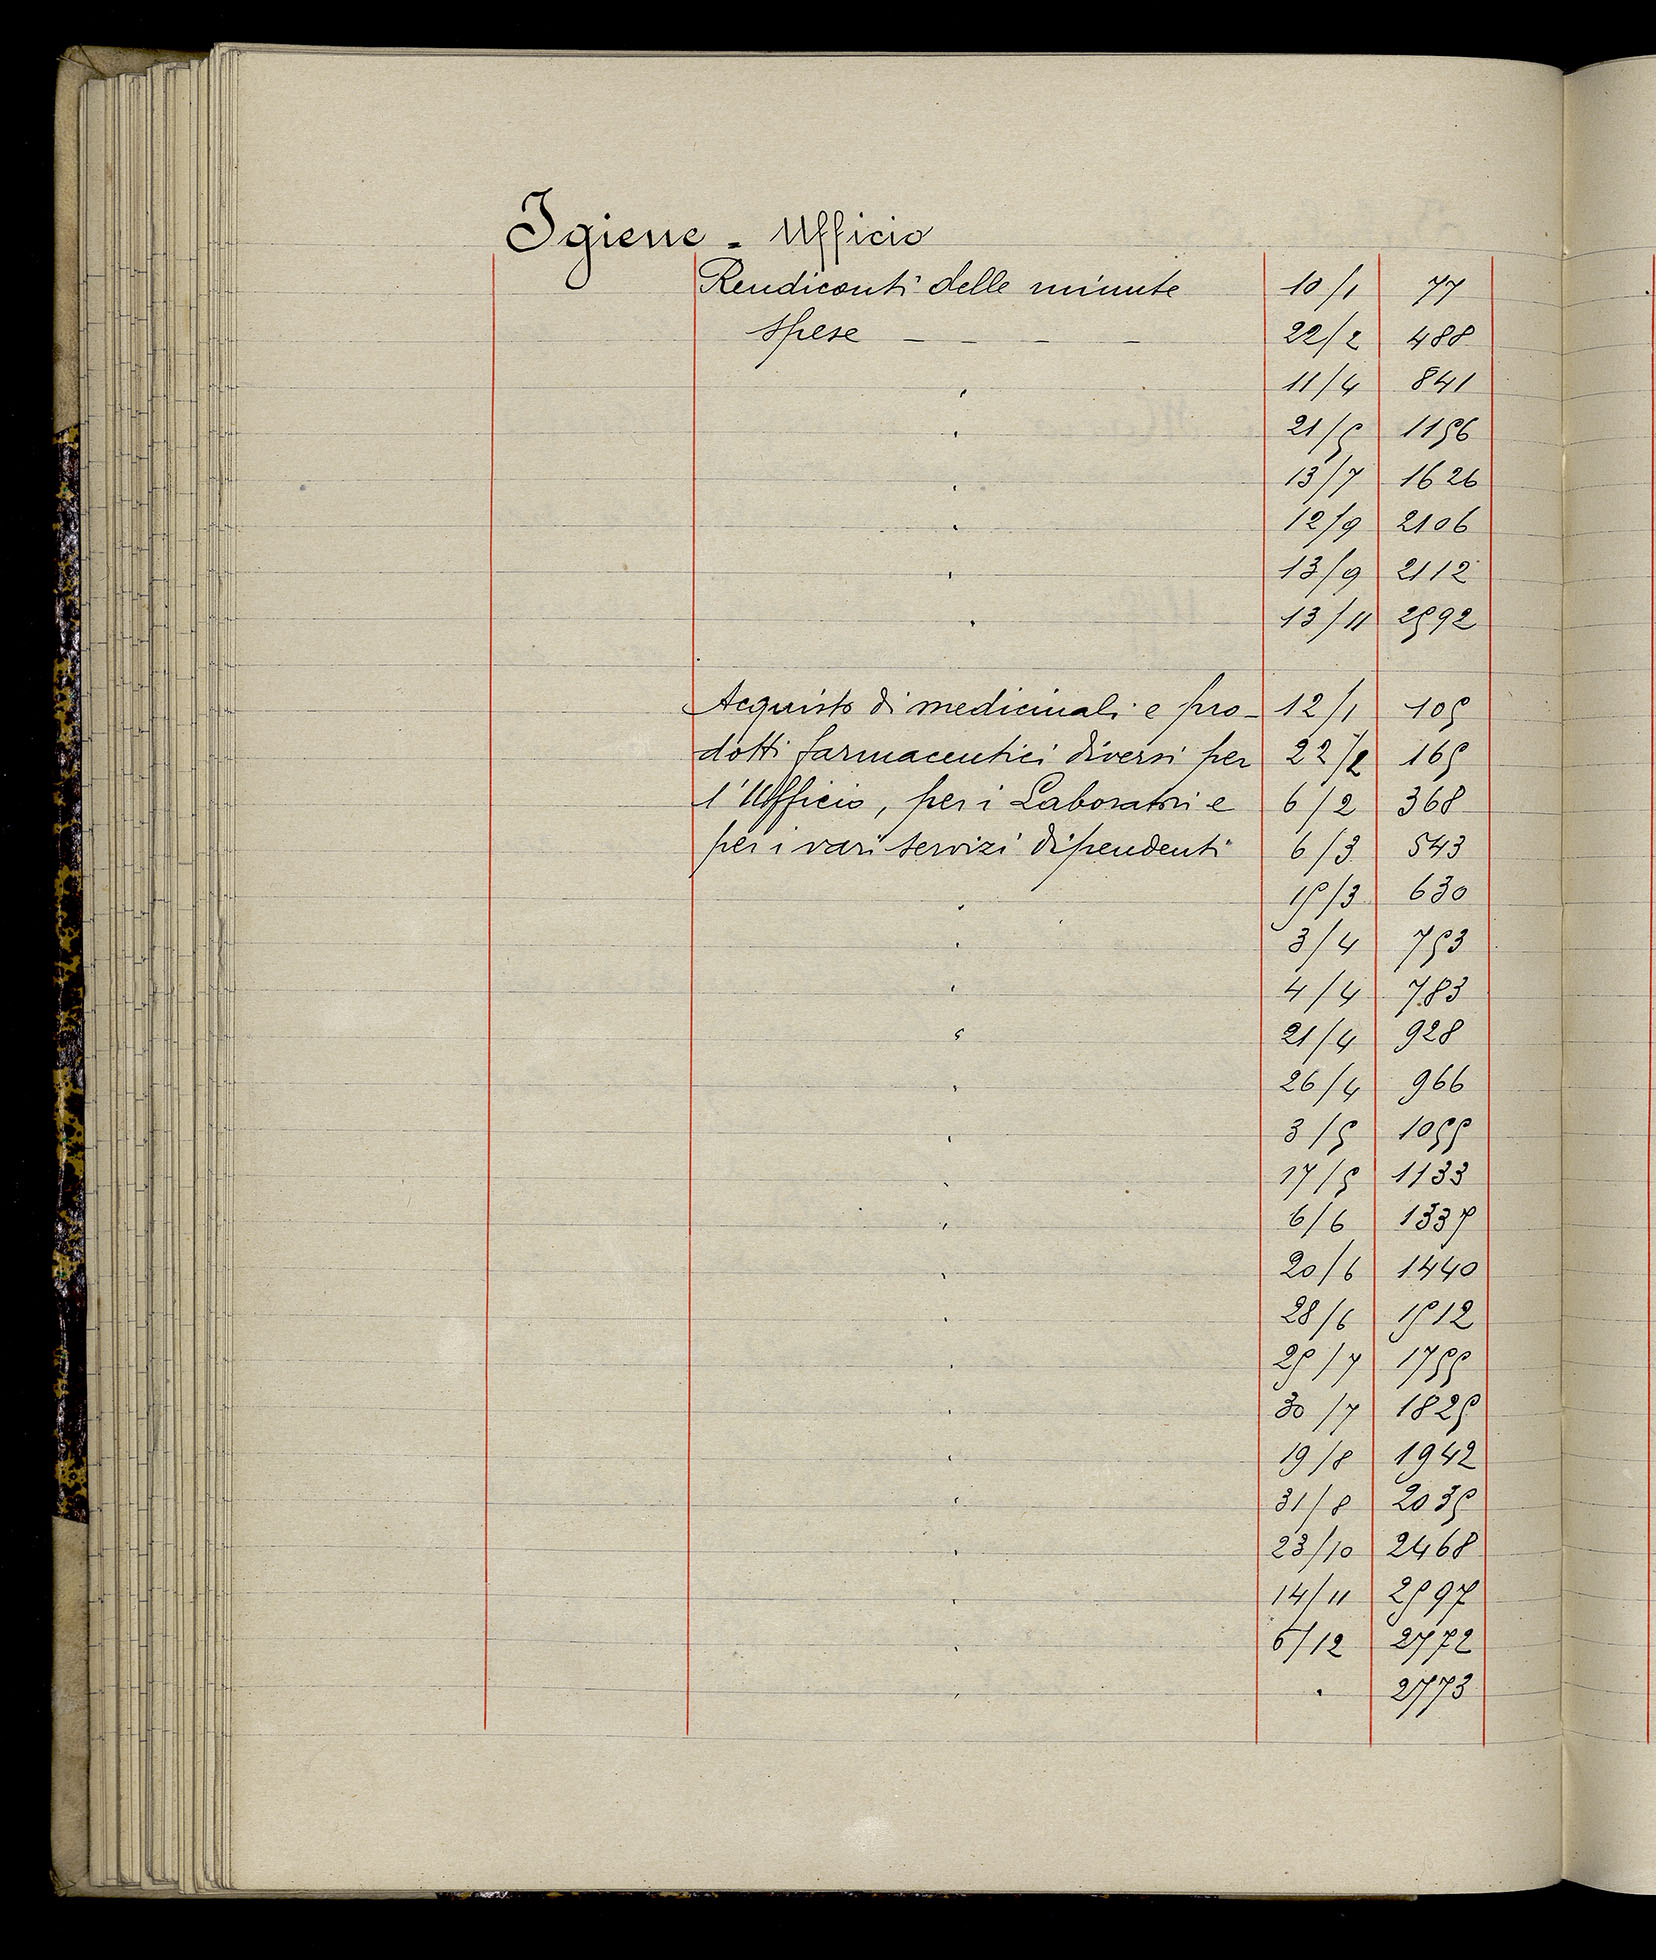 Igiene - Ufficio
Rendiconti delle minute 10/1 77
spese — — — — 22/2 488
" 11/4 841
" 21/5 1156
" 13/7 1626
" 12/9 2106
" 13/9 2112
" 13/11 2592
Acquisto di medicinali e pro- 12/1 105
dotti farmaceutici diversi per 22/2 165
l'Ufficio, per i Laboratori e 6/2 368
per i vari servizi dipendenti 6/3 543
" 15/3 630
" 3/4 753
" 4/4 783
" 21/4 928
" 26/4 966
" 3/5 1055
" 17/5 1133
" 6/6 1337
" 20/6 1440
" 28/6 1512
" 25/7 1755
" 30/7 1825
" 19/8 1942
" 31/8 2035
" 23/10 2468
" 14/11 2597
" 6/12 2772
" " 2773